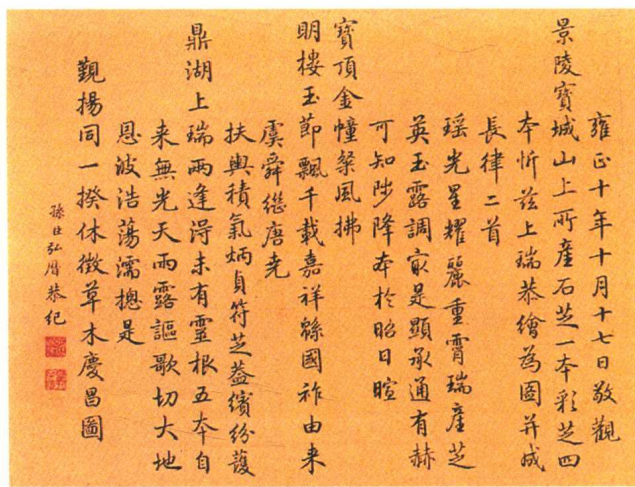 雍正十年十月十七日敬觀
景陵寶城山上所產石芝一本彩芝四
本忻茲上瑞恭繪為圖并成
長律二首
瑤光星耀麗重霄瑞產芝
英玉露調家是顯承通有赫
可知陟降本於昭日暄
寶頂金幢粲風拂
明樓玉節飄千載嘉祥緜國祚由来
虞舜繼唐堯
扶輿積氣炳貞符芝蓋繽紛護
鼎湖上瑞兩逢淂未有靈根五本自
来無光天雨露謳歌切大地
恩波浩蕩濡摠是
覲揚同一揆休徵草木慶昌圖
孫臣弘曆恭紀